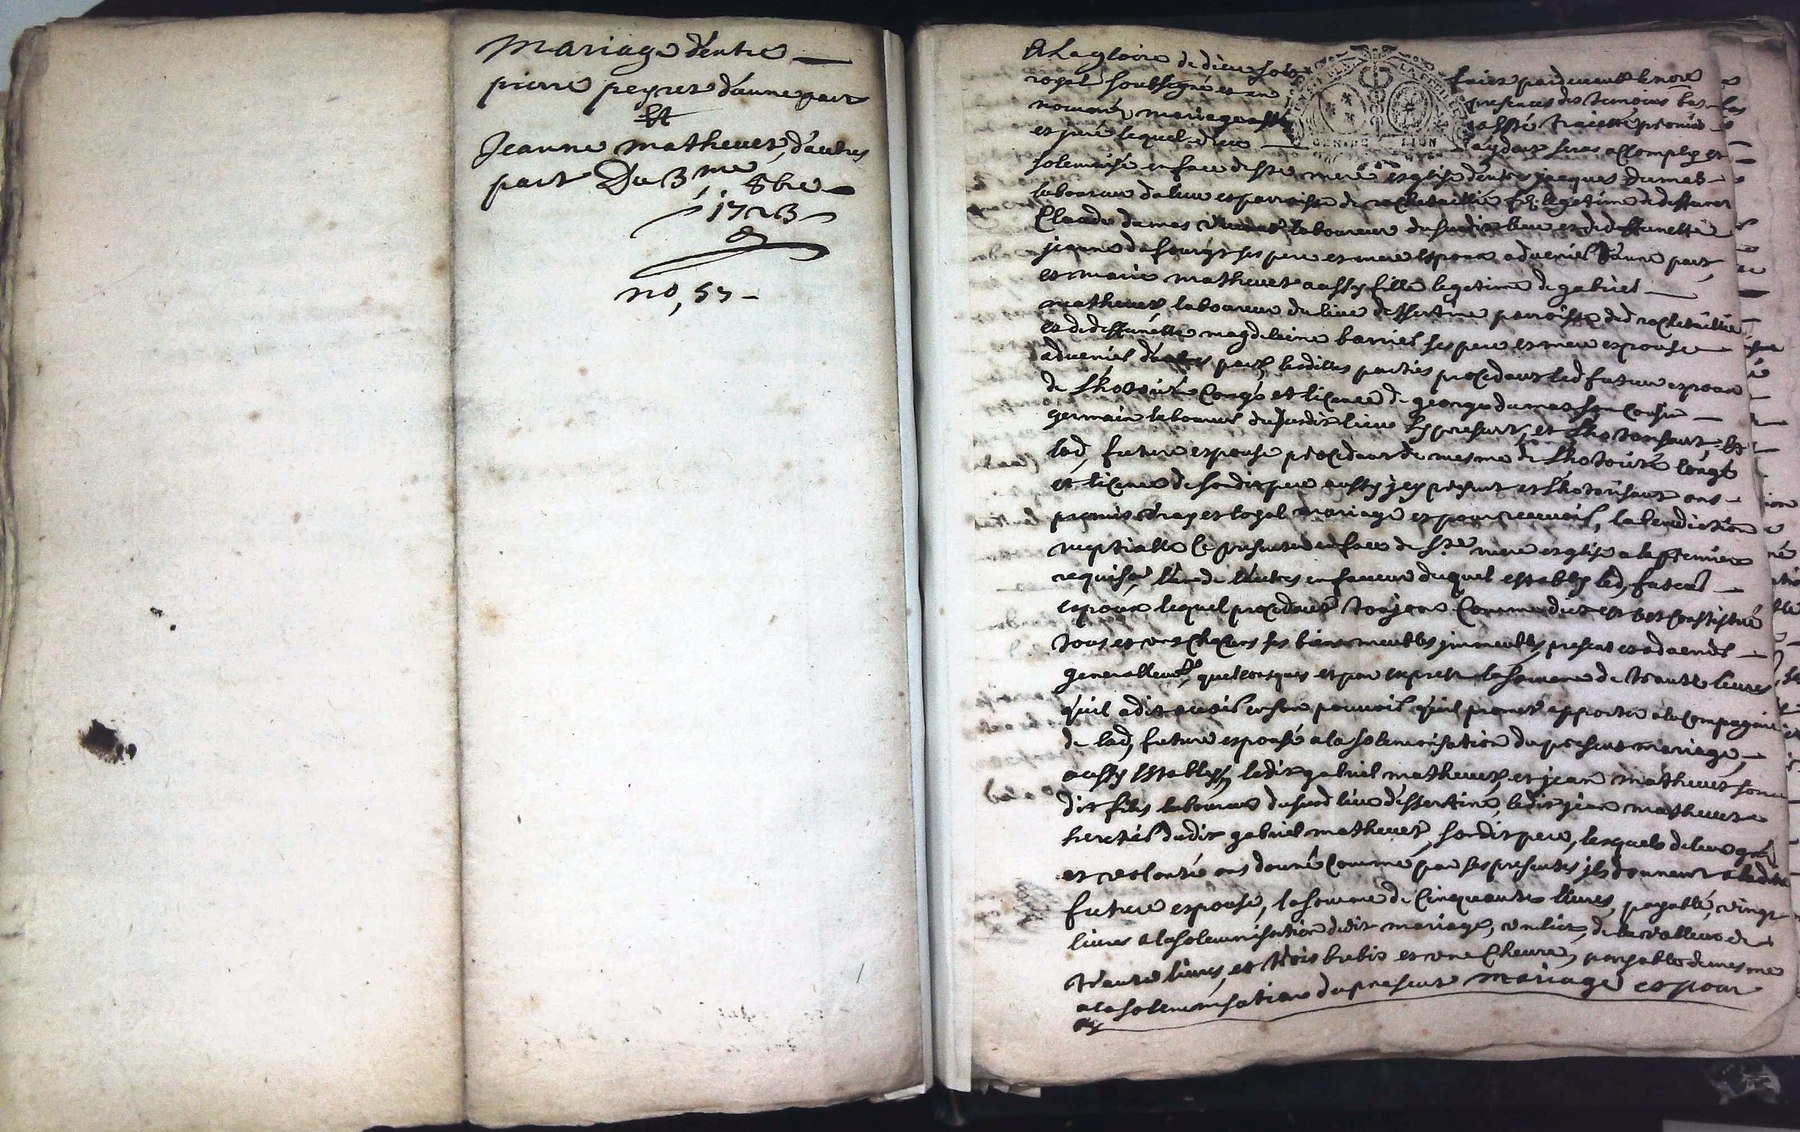 Mariage d'entre
pierre peyret d'aune part
Et
Jeanne matheuet, d'autres
part Du 3me 8bre
1723
no, 57
A La gloire de dieu soit
faict pardeuant le nore
royal soubsigné et en
presences des temoins bas
nommés mariage a esté
traicté promis
et juré lequel dieu
aydant seras accomply et
solemnisé en face de ste mere esglise d'entre jacques dumas
laboureur du lieu et parroisse de rochetaillée fils legetime de deffunct
Claude dumas laboureur du susdit lieu et de deffunctte
jeanne ses pere et mere espoux aduenir d'aune part,
et marie matheuet aussy fille legetime de gabriel
matheuet laboureur du lieu d'essertine parroisse dud rochetaillée
et de deffunctte magdeleine barriel ses pere et mere espouse
aduenir part, lesdittes parties procedant led futeur espoux
de Lhotorité Congé et licence de george dumas son Cousin
germain laboureur du susdit lieue jcy present, et Lhotorisant, Et
lad, future espouse procedant de mesme de Lhotorité Congé
et licence de sondit pere aussy jcy present et Lhotorisant ont
promis vray et logal mariage et pour recevoir, la benediction
nuptialle se presenter en face de ste mere esglise a la premiere
requise, L'un de L'autres en faueur duquel estably led, futeur
espoux lequel procedant toujour Comme dict est s'est Constitué
tous et vns Chacuns ses biens meubles jmmeubles, presens et aduenir
generallement quelconques et par exprest la somme de trante liures
qu'il a dit auoir en son pouuoir qu'il promet apporter a la Compagnie
de lad, future espouse a la solemnisation du present mariage,
aussy establys ledit gabriel matheuet, et jean matheuet son
dit fils laboureur du susd lieu d'essertine, ledit jean matheuet
heretier dudit gabriel matheuet, sondit pere, lesquels de leur gré
et volonté ont donné Comme par ses presentes jls donnent a ladite
future espouse, la somme de Cinquante liures, payable, vingt
liures a la solemnisation dudit mariage, vn lict, de la valleur de
trante liures, et trois brebis et vne Cheure, payable de mesme
a la solemnisation du present mariage et pour